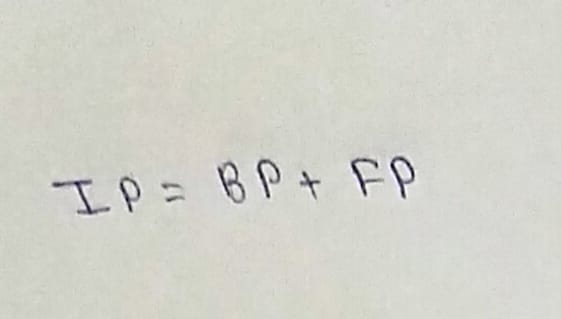 IP = BP + FP